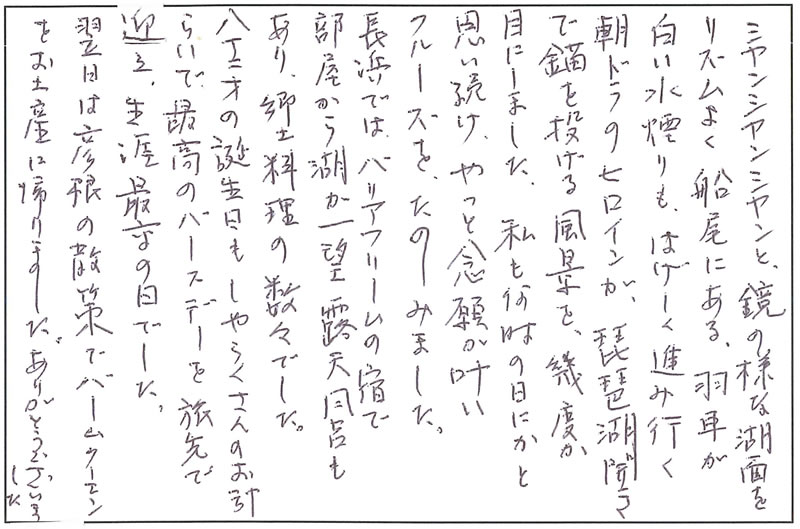 ミヤンミヤンミヤンと、鏡の様な湖面を
リズムよく船尾にある、羽車が
白い水煙りも、はげしく進み行く
朝ドラのヒロインが、琵琶湖開き
で錨を投げる風景を、幾度か
目にしました、私も何時の日にかと
思い続け、やっと念願が叶い
クルーズを、たのしみました。
長浜では、バリアフリームの宿で
部屋から湖が一望露天風呂も
あり、郷土料理の数々でした。
八十二才の誕生日も しゃらくさんのお計
らいで、最高のバースデーを旅先で
迎え、生涯最幸の日でした。
翌日は彦根の散策でバームクーエン
をお土産に帰りました。ありがとうございま
した